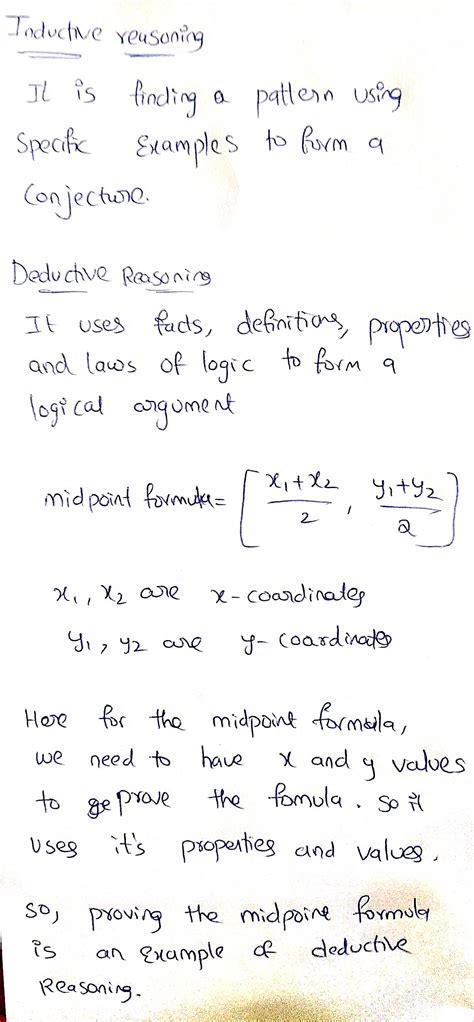 Inductive reasoning
It is finding a pattern using
Specific Examples to form a
Conjecture.
Deductive Reasoning
It uses facts, definitions, properties
and laws of logic to form a
logical argument
midpoint formula = [ x₁+x₂/2 , y₁+y₂/2 ]
x₁, x₂ are x-coordinates
y₁, y₂ are y-coordinates
Here for the midpoint formula,
we need to have x and y values
to prove the fomula. So it
uses it's properties and values.
So, proving the midpoint formula
is an Example of deductive
Reasoning.